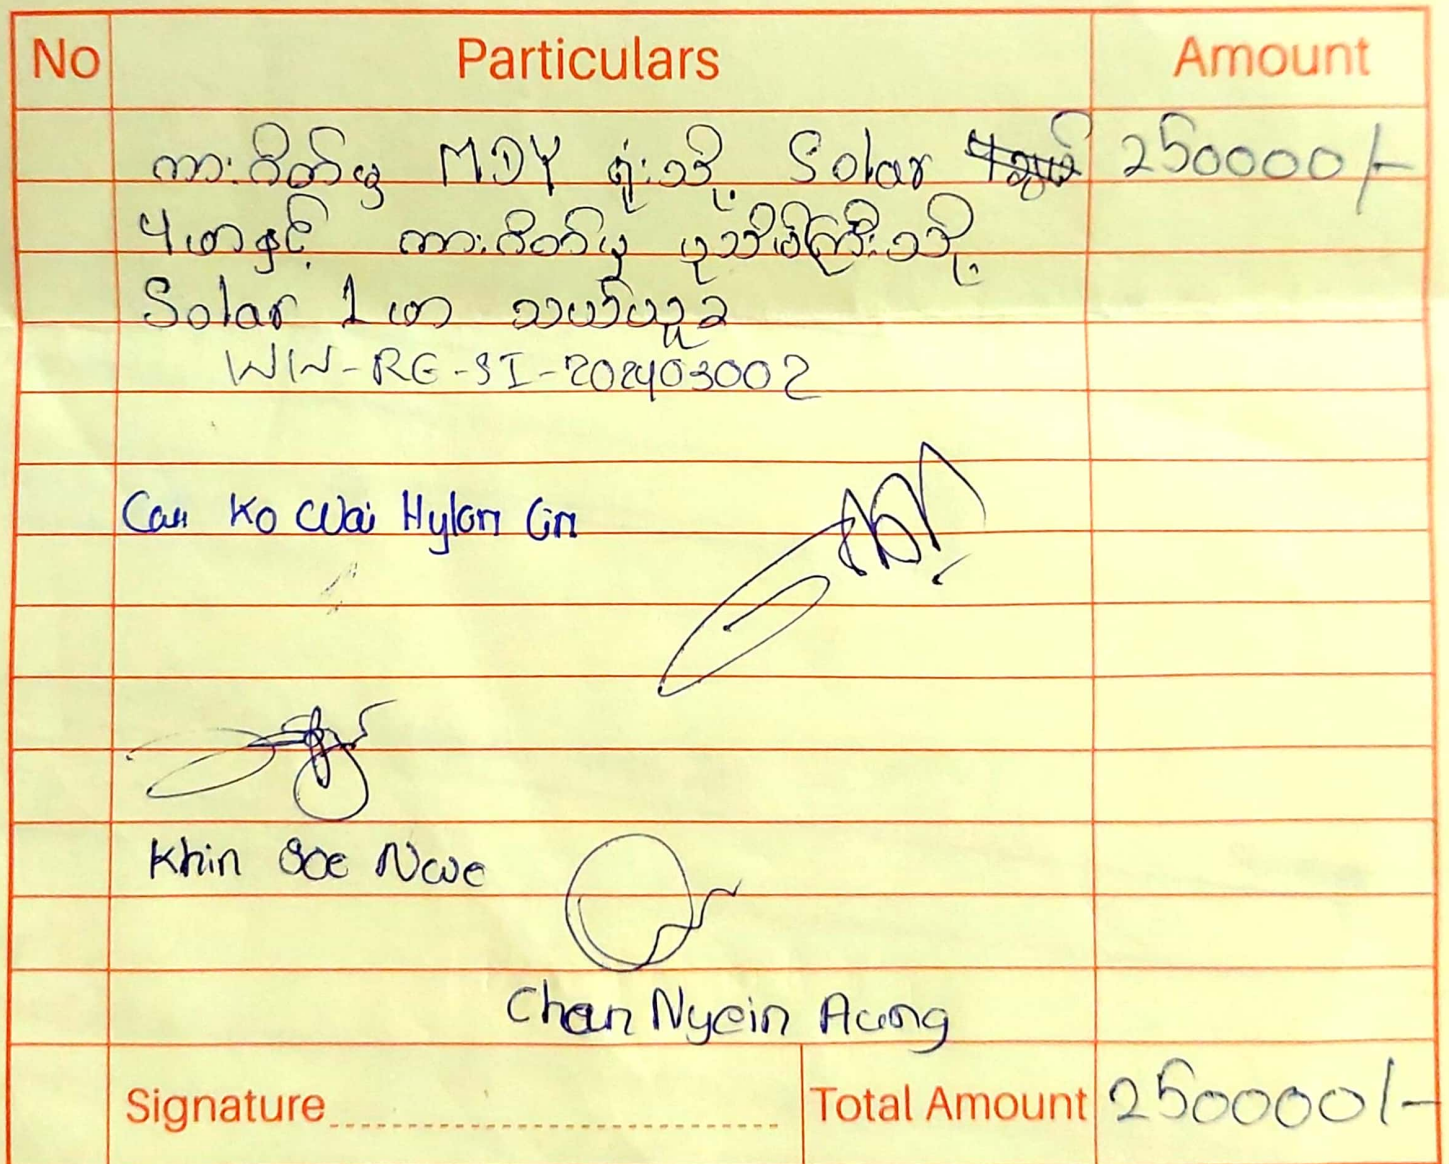 No Particulars Amount
ကားဂိတ်မှ MDY ရုံးသို့ Solar 250000/-
4 ဖာနှင့် ကားဂိတ်မှ ပုသိမ်ကြီးသို့
Solar 1 ဖာ သယ်ယူခ
WIN-RE-SI-202403002
Car Ko Wai Hylan Lin
Khin Soe Nwe
Chan Nyein Aung
Signature Total Amount 250000/-